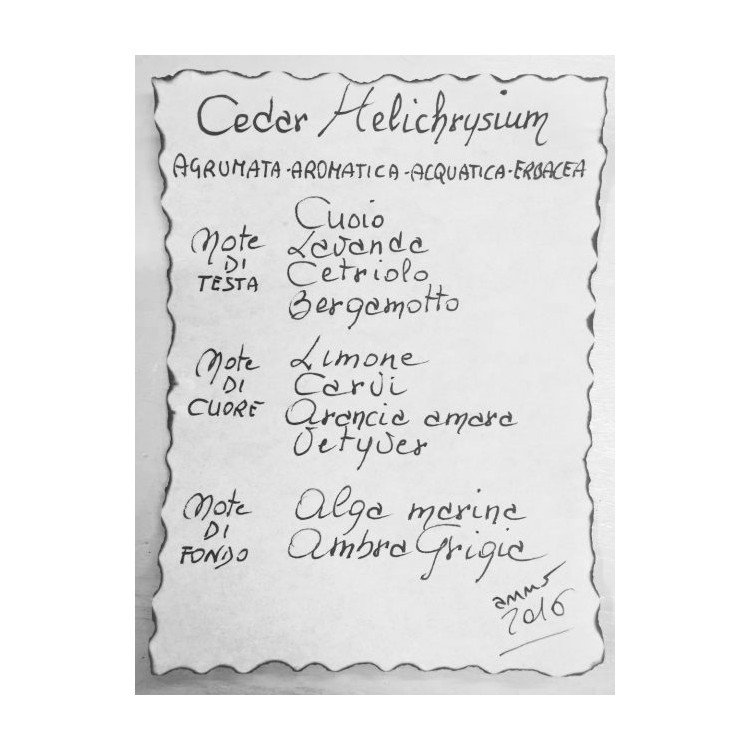 Cedar Helichrysium
AGRUMATA-AROMATICA-ACQUATICA-ERBACEA
Note
DI
TESTA
Cuoio
Lavanda
Cetriolo
Bergamotto
Note
DI
CUORE
Limone
Carvi
Arancia amara
Vetyver
Note
DI
FONDO
Alga marina
Ambra Grigia
anno
2016